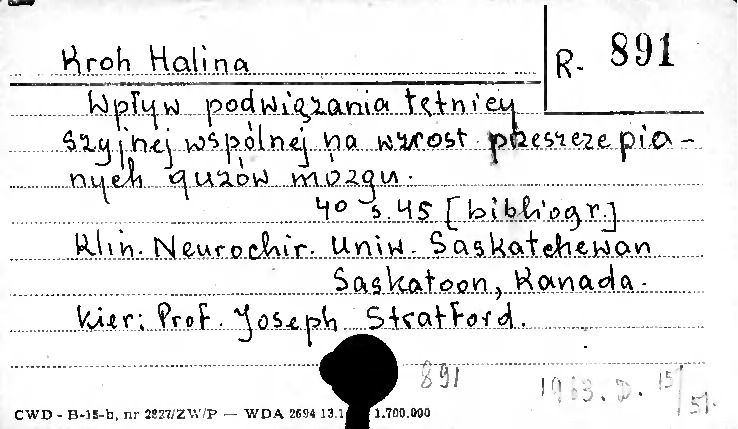 Kroh Halina
R. 891
Wpływ podwiązania tętnicy
szyjnej wspólnej na wzrost przeszczepia-
nych guzów mózgu.
40 s. 45 [bibliogr.]
Klin. Neurochir. Uniw. Saskatchewan
Saskatoon, Kanada.
Kier: Prof. Joseph Stratford.
891
1963. D. 15/51.
CWD - B-15-b, nr 2827/ZW/P — WDA 2694 13.1 1.700.000